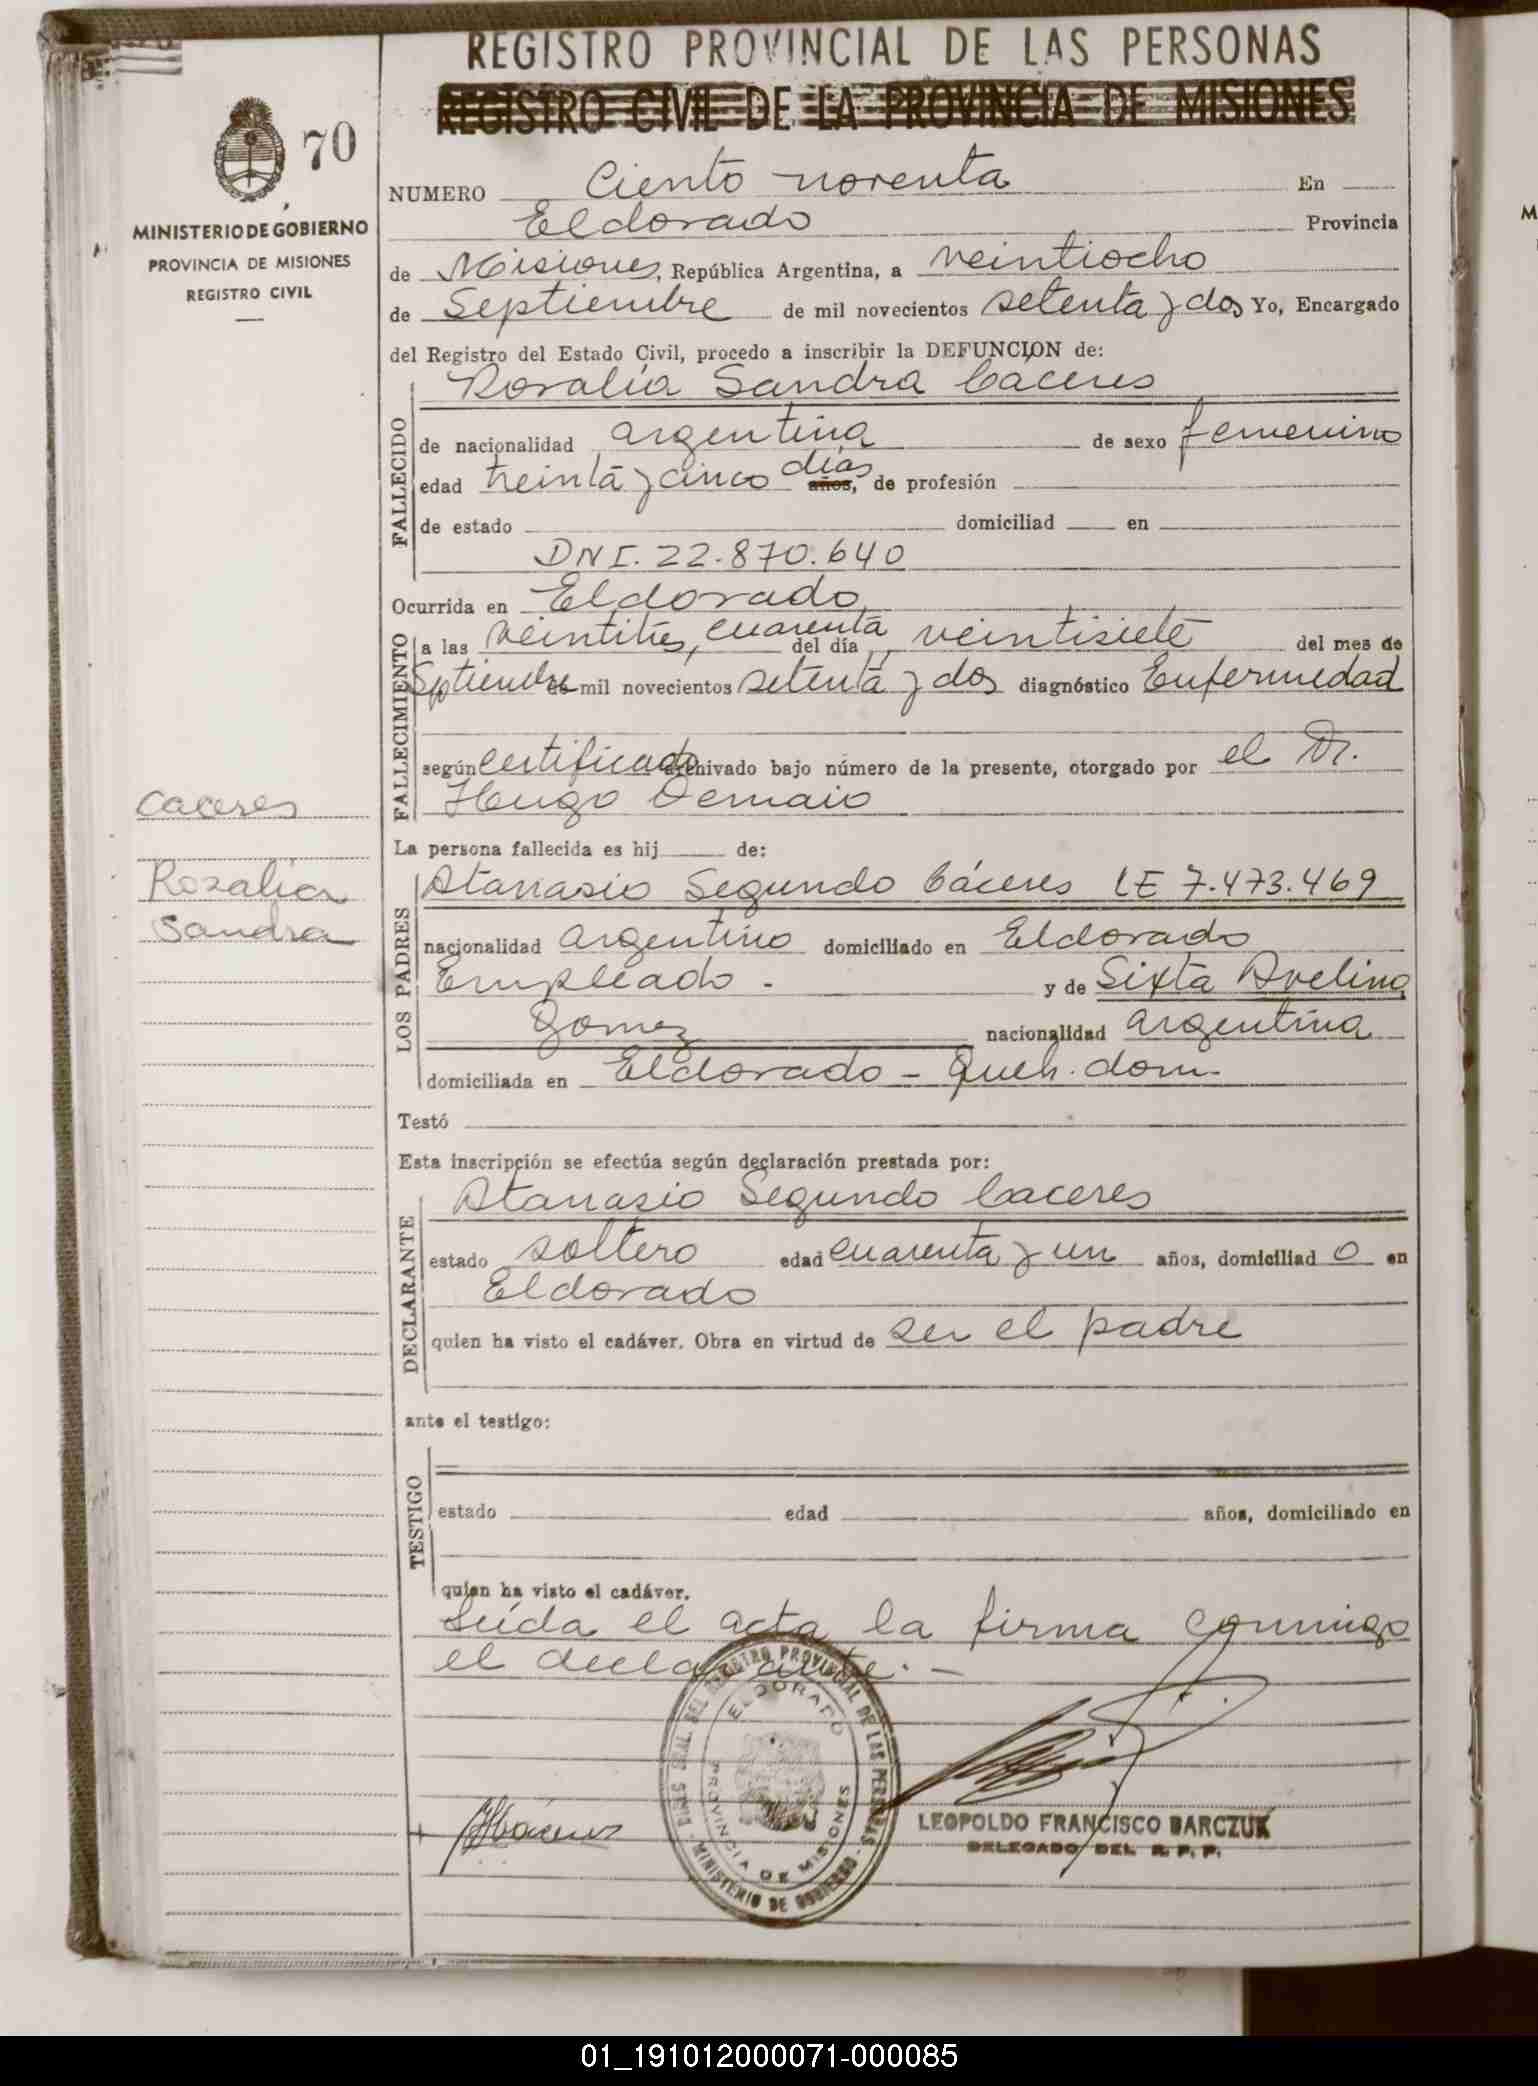 REGISTRO PROVINCIAL DE LAS PERSONAS
REGISTRO CIVIL DE LA PROVINCIA DE MISIONES
70
MINISTERIO DE GOBIERNO
PROVINCIA DE MISIONES
REGISTRO CIVIL
NUMERO Ciento noventa En
Eldorado Provincia
de Misiones, República Argentina, a veintiocho
de Septiembre de mil novecientos setenta y dos Yo, Encargado
del Registro del Estado Civil, procedo a inscribir la DEFUNCION de:
Rosalia Sandra Cáceres
FALLECIDO
de nacionalidad argentina de sexo femenino
edad treinta y cinco días años, de profesión
de estado domiciliad en
DNI. 22.870.640
Ocurrida en Eldorado
FALLECIMIENTO
a las veintitrés, cuarenta del día veintisiete del mes de
Septiembre de mil novecientos setenta y dos diagnóstico Enfermedad
según certificado archivado bajo número de la presente, otorgado por el Dr.
Hugo Demaio
Caceres
Rosalia
Sandra
La persona fallecida es hij de:
LOS PADRES
Atanasio Segundo Cáceres LE 7.473.469
nacionalidad argentino domiciliado en Eldorado
Empleado - y de Sixta Avelina
Gomez nacionalidad argentina
domiciliada en Eldorado - Queh. dom.
Testó
Esta inscripción se efectúa según declaración prestada por:
DECLARANTE
Atanasio Segundo Caceres
estado soltero edad cuarenta y un años, domiciliad o en
Eldorado
quien ha visto el cadáver. Obra en virtud de ser el padre
ante el testigo:
TESTIGO
estado edad años, domiciliado en
quien ha visto el cadáver.
Leída el acta la firma conmigo
el declarante. -
REGISTRO PROVINCIAL DE LAS PERSONAS
ELDORADO
PROVINCIA DE MISIONES
MINISTERIO DE GOBIERNO
Cáceres
LEOPOLDO FRANCISCO BARCZUK
DELEGADO DEL R. P. P.
01_191012000071-000085